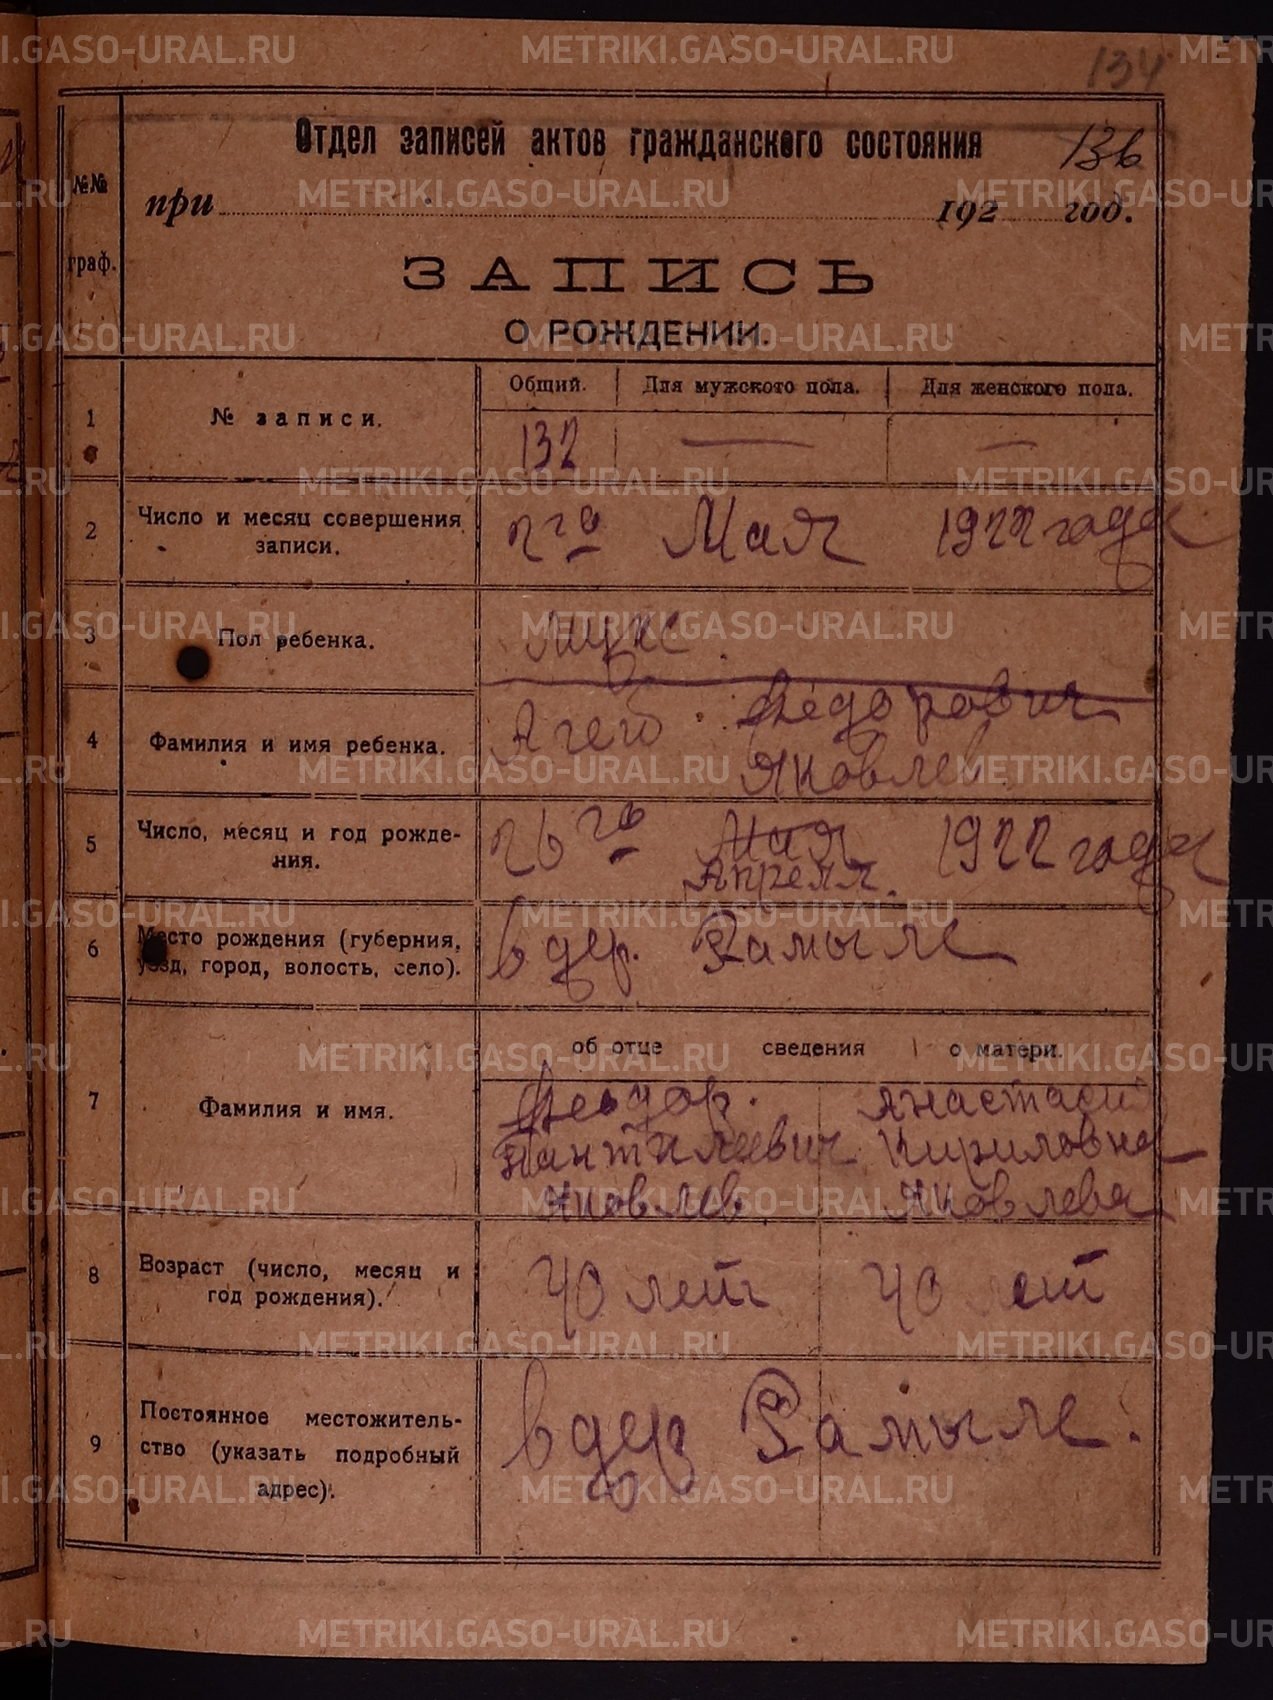 134
Отдел записей актов гражданского состояния
136
№№ граф.
при 192 год.
ЗАПИСЬ
О РОЖДЕНИИ.
Общий. Для мужского пола. Для женского пола.
1 № записи. 132 — —
2 Число и месяц совершения записи. 2го Мая 1922 года
3 Пол ребенка. муж
4 Фамилия и имя ребенка. Федорович
Яковлев
5 Число, месяц и год рождения. 26го Мая 1922 года
Апреля.
6 Место рождения (губерния, уезд, город, волость, село). в дер. Рамыле
об отце сведения о матери.
7 Фамилия и имя. Феодор. Анастасия
Пантилеевич Кириловна
Яковлев Яковлева
8 Возраст (число, месяц и год рождения). 40 лет 40 лет
9 Постоянное местожительство (указать подробный адрес). в дер Рамыле.
METRIKI.GASO-URAL.RU